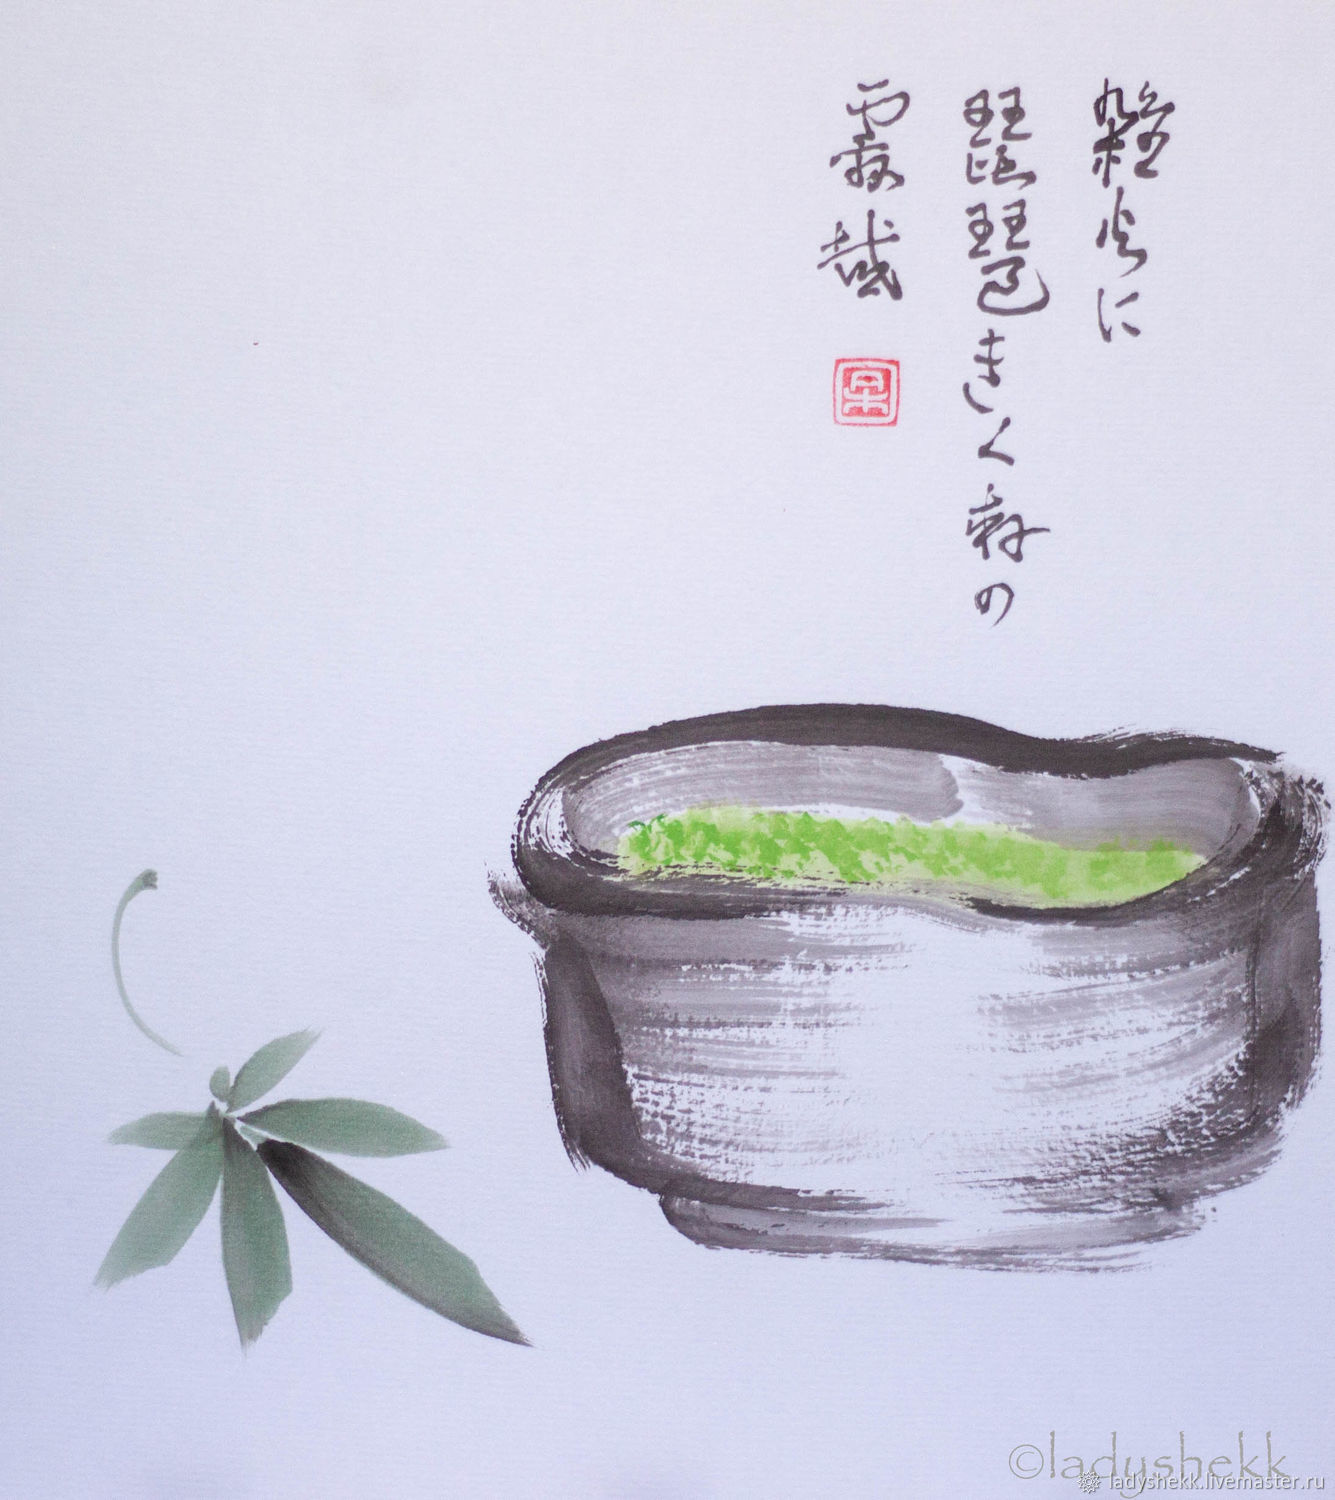 雑水に
琵琶きく軒の
霰哉
©ladyshekk
ladyshekk.livemaster.ru